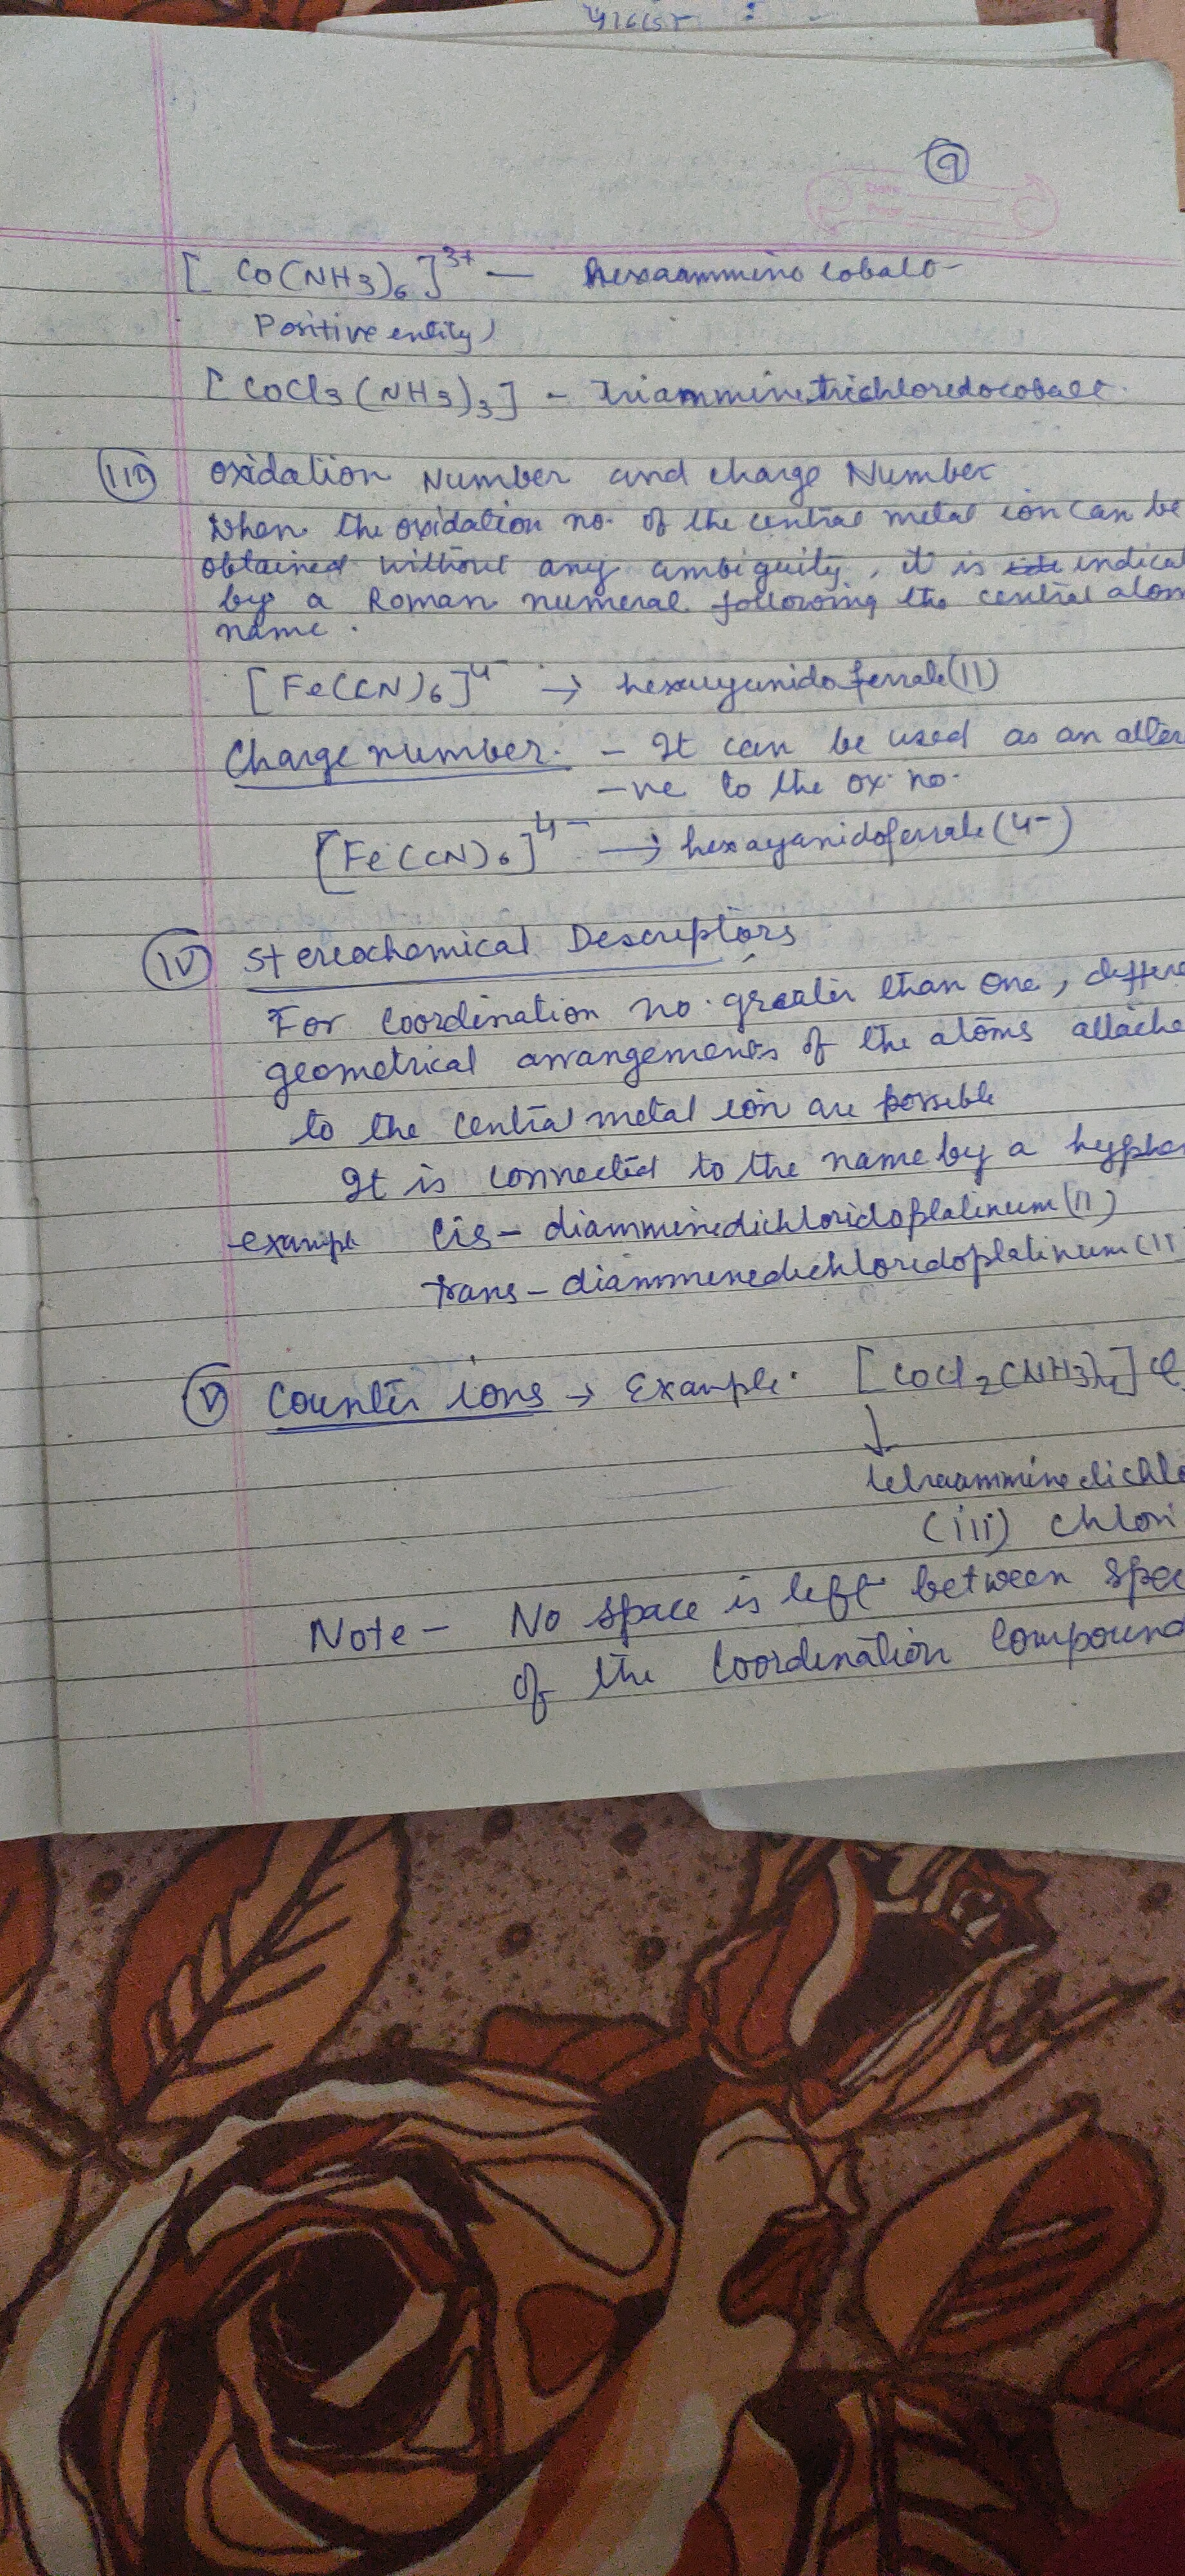 9
[Co(NH3)6]3+ — hexaammine cobalt-
Positive entity)
[CoCl3(NH3)3] - triamminetrichloridocobalt
(iii) Oxidation Number and charge Number
When the oxidation no. of the central metal ion can be
obtained without any ambiguity, it is indicat
by a Roman numeral following the central atom
name.
[Fe(CN)6]4- → hexacyanidoferrate(II)
Charge number. - It can be used as an alter
-ve to the ox. no.
[Fe(CN)6]4- → hexacyanidoferrate(4-)
(iv) Stereochemical Descriptors
For coordination no. greater than one, differe
geometrical arrangements of the atoms attache
to the central metal ion are possible
It is connected to the name by a hyphen
example cis - diamminedichloridoplatinum(II)
trans - diamminedichloridoplatinum(II
(v) Counter ions → Example. [CoCl2(NH3)4]Cl
↓
tetraamminedichlo
(iii) chlori
Note - No space is left between spec
of the coordination compound